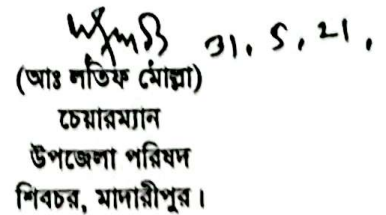 31.5.21.
(আঃ লতিফ মোল্লা)
চেয়ারম্যান
উপজেলা পরিষদ
শিবচর, মাদারীপুর।